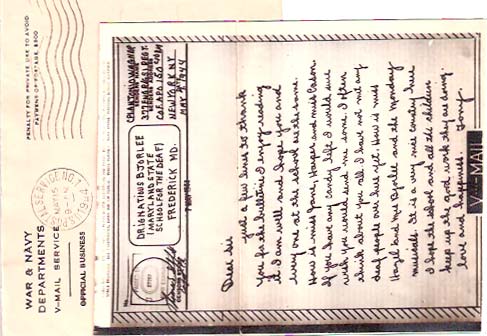 PENALTY FOR PRIVATE USE TO AVOID
PAYMENT OF POSTAGE, $300
WAR & NAVY
DEPARTMENTS
V-MAIL SERVICE
OFFICIAL BUSINESS
1944
No.
DR IGNATIUS BJORLEE
(MARYLAND STATE
SCHOOL FOR THE DEAF)
FREDERICK MD.
CO. A A.P.O. 150
NEW YORK N.Y.
MAY 4, 1944
Dear Sir
just a few lines to thank
you for the bulletine I enjoy reading
it I am well and hope you and
every one at the school are the same.
How is miss Bane, Harper and miss Eason
If you have any candy left I would sure
wish you would send me some. I often
think about you all I have not met any
deaf people over here yet. How is miss
Hazel and Mrs Bjorlee and the Monday
musicals. It is a very nice country here
I hope the school and all the children
keep up the good work they are doing.
love and happiness. Tony.
V-MAIL